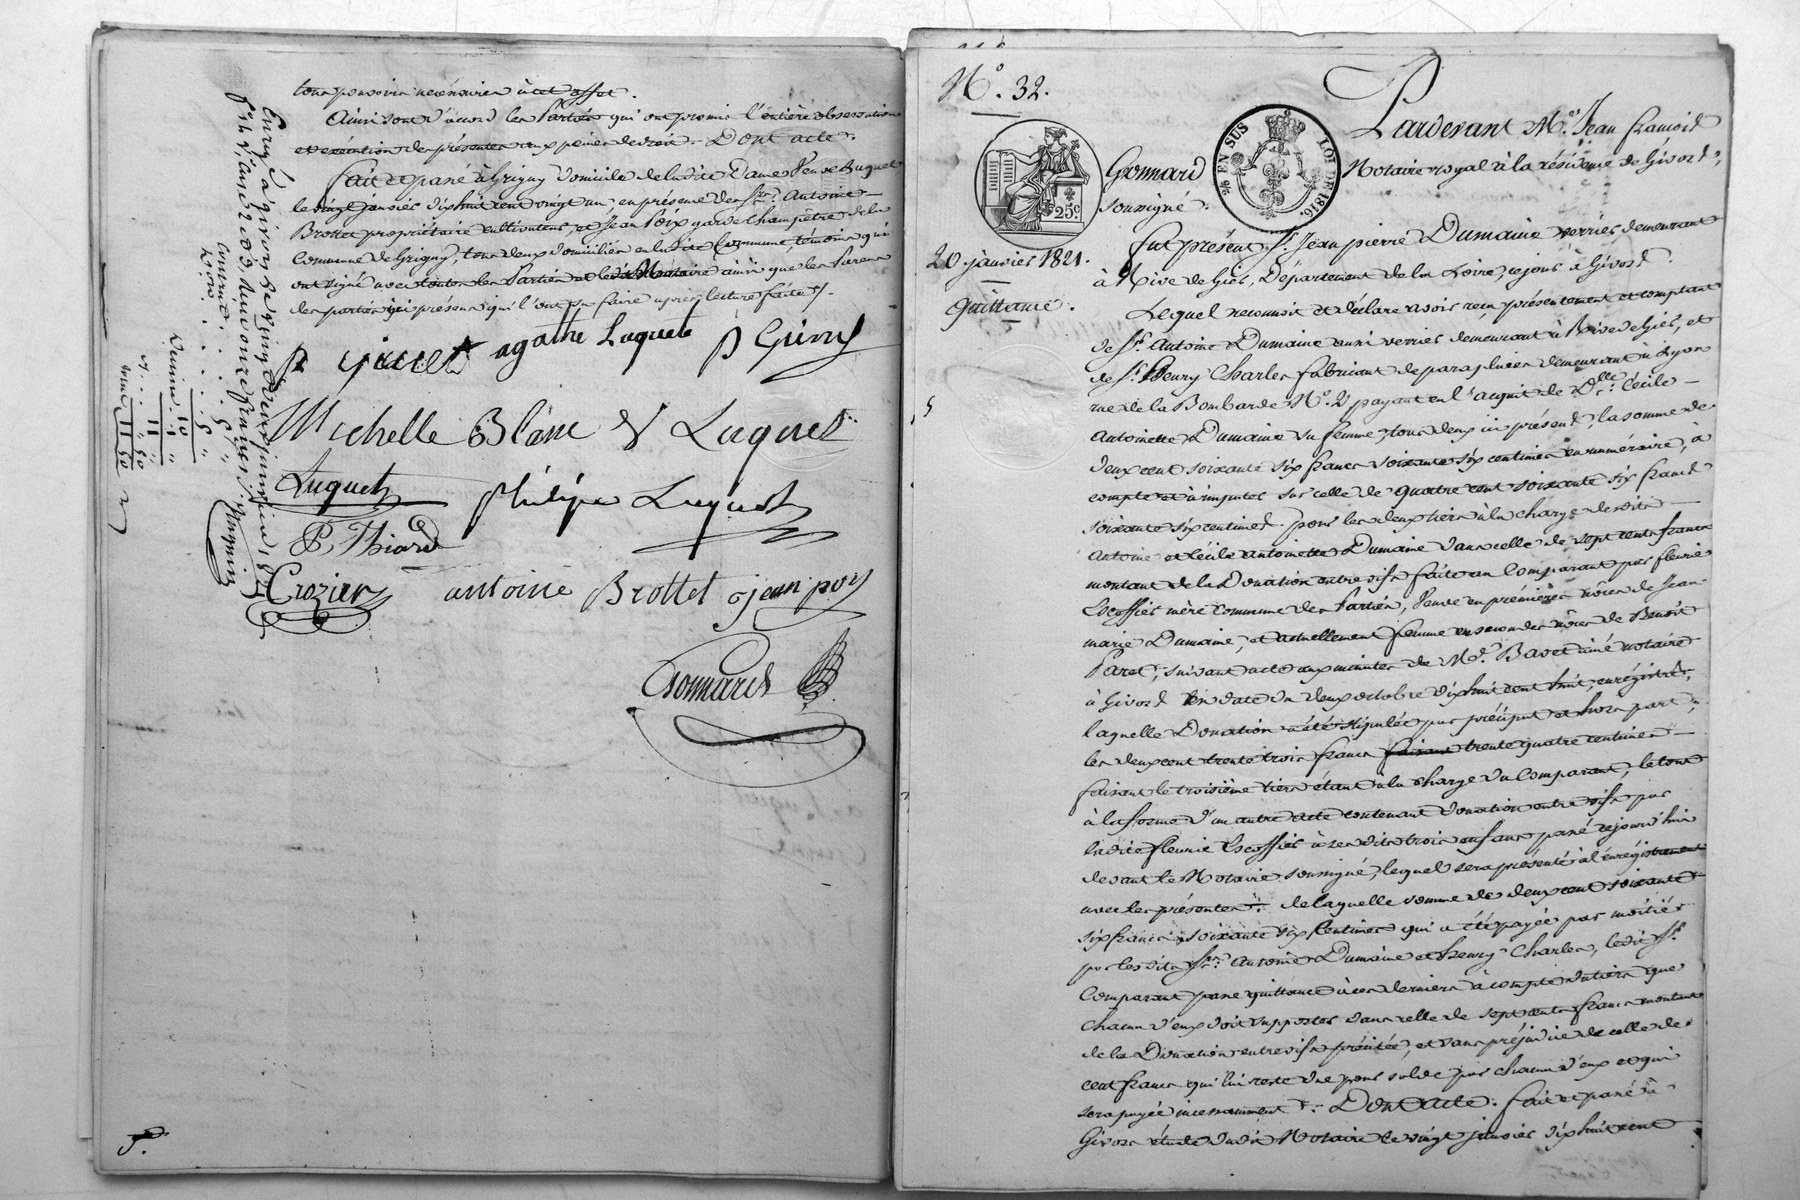 tous pouvoirs nécessaires à cet effet.
Ainsi sont d'accord les Parties qui ont promis l'entière observation
et exécution des présentes aux peines de droit. Dont acte.
Fait et passé à Grigny domicile de la dite Dame Veuve Luquet
le vingt janvier dix huit cent vingt un en présence de Srs. Antoine
Brottet propriétaire cultivateur et Jean Poix garde champêtre de la
Commune de Grigny, tous deux domiciliés en la dite Commune, témoins qui
ont signé avec toutes les Parties et le Notaire ainsi que les Parens
des parties ici présens qui l'ont pu faire après lecture faite
agathe Luquete
Michelle Blanc V Luquet
Luquet
philipe Luquet
P. Thiard
Crozier
antoine Brottet
jean poy
Gonnard
Enrég. à Givors le vingt deux janvier 1821
Comm.
Décime
N.° 32.
Pardevant M.e Jean francois
Gonnard
Notaire royal à la résidence de Givors,
soussigné.
25c
25 EN SUS
LOI DE 1816.
20 janvier 1821.
Quittance.
fut présent Sr. Jean pierre Dumaine verrier demeurant
à Rive de Gier, Département de la Loire, ce jour à Givors.
Lequel reconnoit et déclare avoir reçu présentement et comptant
de Sr. Antoine Dumaine aussi verrier demeurant à Rive de Gier, et
de Sr. Henry Charles fabricant de parapluies demeurant à Lyon
rue de la Bombarde N.° 2, payant en l'acquit de Dlle. Cécile
Antoinette Dumaine sa femme, tous deux ici présens, la somme de
deux cent soixante six francs soixante six centimes en numéraire, à
compte et à imputer sur celle de quatre cent soixante six francs
soixante six centimes pour les deux tiers à la charge desdits
Antoine et Cécile Antoinette Dumaine dans celle de sept cents francs
montant de la Donation entre vifs faite au Comparant par fleurie
Escoffier mère commune des Parties, Veuve en premières nôces de Jean
marie Dumaine, et actuellement femme en secondes nôces de Benoît
Paret, suivant acte aux minutes de M.e Bavet ainé notaire
à Givors en date du deux octobre dix huit cent huit, enregistré,
laquelle Donation a été stipulée par préciput et hors part,
les deux cent trente trois francs trente quatre centimes
faisant le troisième tiers étant à la charge du Comparant, le tout
à la forme d'un autre acte contenant donation entre vifs par
ladite fleurie Escoffier à ses dits trois enfans passé cejourd'hui
devant le Notaire soussigné, lequel sera présenté à l'enrégistrement
avec les présentes. de laquelle somme de deux cent soixante
six francs soixante six centimes qui a été payée par moitié
par lesdits Srs. Antoine Dumaine et henry Charles, ledit Sr.
Comparant passe quittance à ces derniers à compte du tiers que
chacun d'eux doit supporter dans celle de sept cents francs montant
de la Donation entre vifs précitée, et sans préjudice de celle de
cent francs qui lui reste due pour solde par chacun d'eux et qui
sera payée incessamment. Dont acte. fait et passé à
Givors étude dudit Notaire le vingt janvier dix huit cent